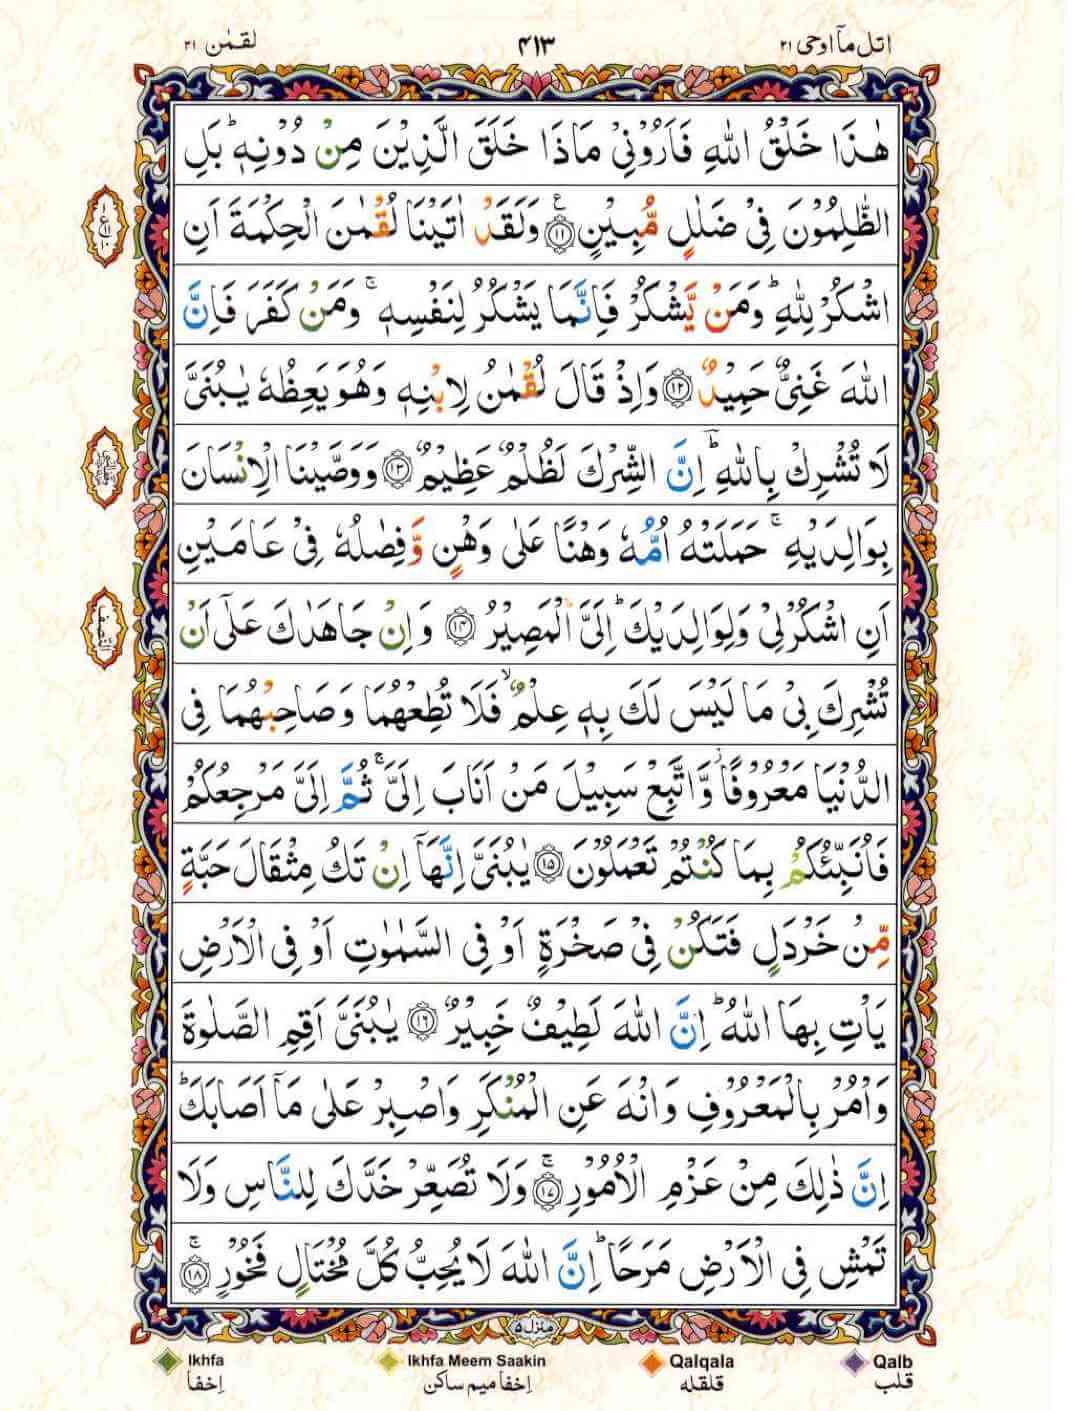 اتل مآ اوحی ۲۱ ۴۱۳ لقمٰن ۳۱
هٰذَا خَلْقُ اللّٰهِ فَاَرُوْنِیْ مَاذَا خَلَقَ الَّذِیْنَ مِنْ دُوْنِهٖ ؕ بَلِ
الظّٰلِمُوْنَ فِیْ ضَلٰلٍ مُّبِیْنٍ ﴿۱۱﴾ وَلَقَدْ اٰتَیْنَا لُقْمٰنَ الْحِكْمَةَ اَنِ
اشْكُرْ لِلّٰهِ ؕ وَمَنْ یَّشْكُرْ فَاِنَّمَا یَشْكُرُ لِنَفْسِهٖ ۚ وَمَنْ كَفَرَ فَاِنَّ
اللّٰهَ غَنِیٌّ حَمِیْدٌ ﴿۱۲﴾ وَاِذْ قَالَ لُقْمٰنُ لِابْنِهٖ وَهُوَ یَعِظُهٗ یٰبُنَیَّ
لَا تُشْرِكْ بِاللّٰهِ ؕ اِنَّ الشِّرْكَ لَظُلْمٌ عَظِیْمٌ ﴿۱۳﴾ وَوَصَّیْنَا الْاِنْسَانَ
بِوَالِدَیْهِ ۚ حَمَلَتْهُ اُمُّهٗ وَهْنًا عَلٰی وَهْنٍ وَّفِصٰلُهٗ فِیْ عَامَیْنِ
اَنِ اشْكُرْ لِیْ وَلِوَالِدَیْكَ ؕ اِلَیَّ الْمَصِیْرُ ﴿۱۴﴾ وَاِنْ جَاهَدٰكَ عَلٰۤی اَنْ
تُشْرِكَ بِیْ مَا لَیْسَ لَكَ بِهٖ عِلْمٌ ۙ فَلَا تُطِعْهُمَا وَصَاحِبْهُمَا فِی
الدُّنْیَا مَعْرُوْفًا ؗ وَّاتَّبِعْ سَبِیْلَ مَنْ اَنَابَ اِلَیَّ ۚ ثُمَّ اِلَیَّ مَرْجِعُكُمْ
فَاُنَبِّئُكُمْ بِمَا كُنْتُمْ تَعْمَلُوْنَ ﴿۱۵﴾ یٰبُنَیَّ اِنَّهَاۤ اِنْ تَكُ مِثْقَالَ حَبَّةٍ
مِّنْ خَرْدَلٍ فَتَكُنْ فِیْ صَخْرَةٍ اَوْ فِی السَّمٰوٰتِ اَوْ فِی الْاَرْضِ
یَاْتِ بِهَا اللّٰهُ ؕ اِنَّ اللّٰهَ لَطِیْفٌ خَبِیْرٌ ﴿۱۶﴾ یٰبُنَیَّ اَقِمِ الصَّلٰوةَ
وَاْمُرْ بِالْمَعْرُوْفِ وَانْهَ عَنِ الْمُنْكَرِ وَاصْبِرْ عَلٰی مَاۤ اَصَابَكَ ؕ
اِنَّ ذٰلِكَ مِنْ عَزْمِ الْاُمُوْرِ ۚ ﴿۱۷﴾ وَلَا تُصَعِّرْ خَدَّكَ لِلنَّاسِ وَلَا
تَمْشِ فِی الْاَرْضِ مَرَحًا ؕ اِنَّ اللّٰهَ لَا یُحِبُّ كُلَّ مُخْتَالٍ فَخُوْرٍ ۚ ﴿۱۸﴾
منزل ۵
Ikhfa Ikhfa Meem Saakin Qalqala Qalb
إخفا إخفا ميم ساكن قلقله قلب